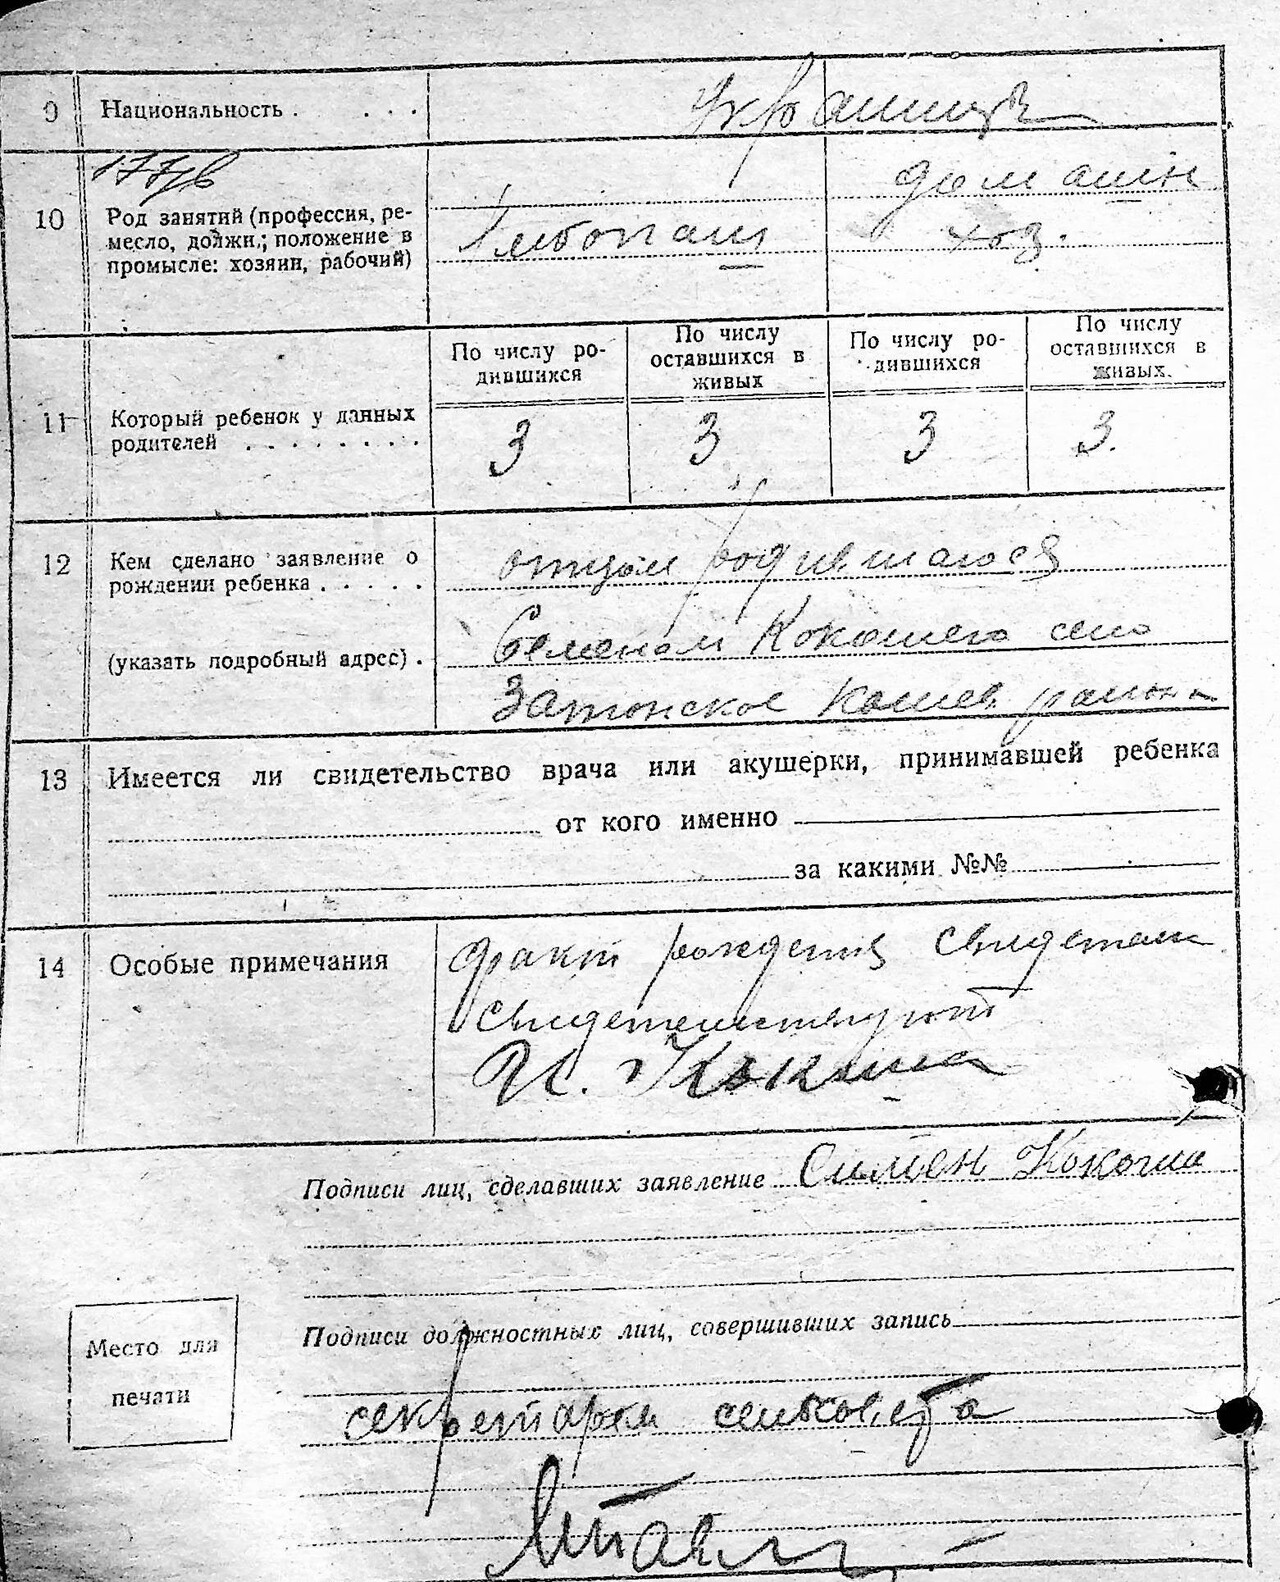 9 Национальность . . . . .
Украинцы
177/в
10 Род занятий (профессия, ре-
месло, должн.; положение в
промысле: хозяин, рабочий)
домашн
хоз.
По числу ро-
дившихся
По числу
оставшихся в
живых
По числу ро-
дившихся
По числу
оставшихся в
живых.
11 Который ребенок у данных
родителей . . . . . . . .
3 3 3 3.
12 Кем сделано заявление о
рождении ребенка . . . . .
(указать подробный адрес) .
отцом родившагося
Семеном Кокошею село
Затонское Кошев. района
13 Имеется ли свидетельство врача или акушерки, принимавшей ребенка
от кого именно
за какими №№
14 Особые примечания
факт рождения свидетели
свидетельствуют
И. Кокоша
Подписи лиц, сделавших заявление Симен Кокоша
Подписи должностных лиц, совершивших запись
Место для
печати
секретарем сельсовета